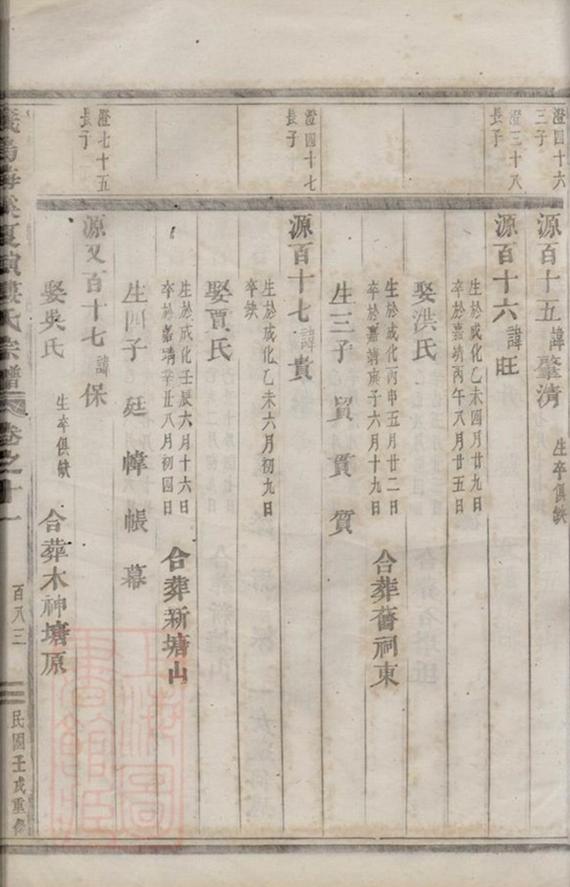 澄四十六
三子
源百十五 諱肇清 生卒俱缺
澄三十八
長子
源百十六 諱旺
生於成化乙未四月廿九日
卒於嘉靖丙午八月廿五日
娶洪氏
生於成化丙申五月廿二日
卒於嘉靖庚子六月十九日
合葬舊祠東
生三子 貿 貭 質
澄四十七
長子
源百十七 諱貴
生於成化乙未六月初九日
卒缺
娶賈氏
生於成化壬辰六月十六日
卒於嘉靖辛丑八月初四日
合葬新塘山
生四子 廷 幃 帳 幕
澄七十五
長子
源又百十七 諱保
娶吳氏 生卒俱缺
合葬木神塘原
氏宗譜 卷之十一 百八三 民國壬戌重修